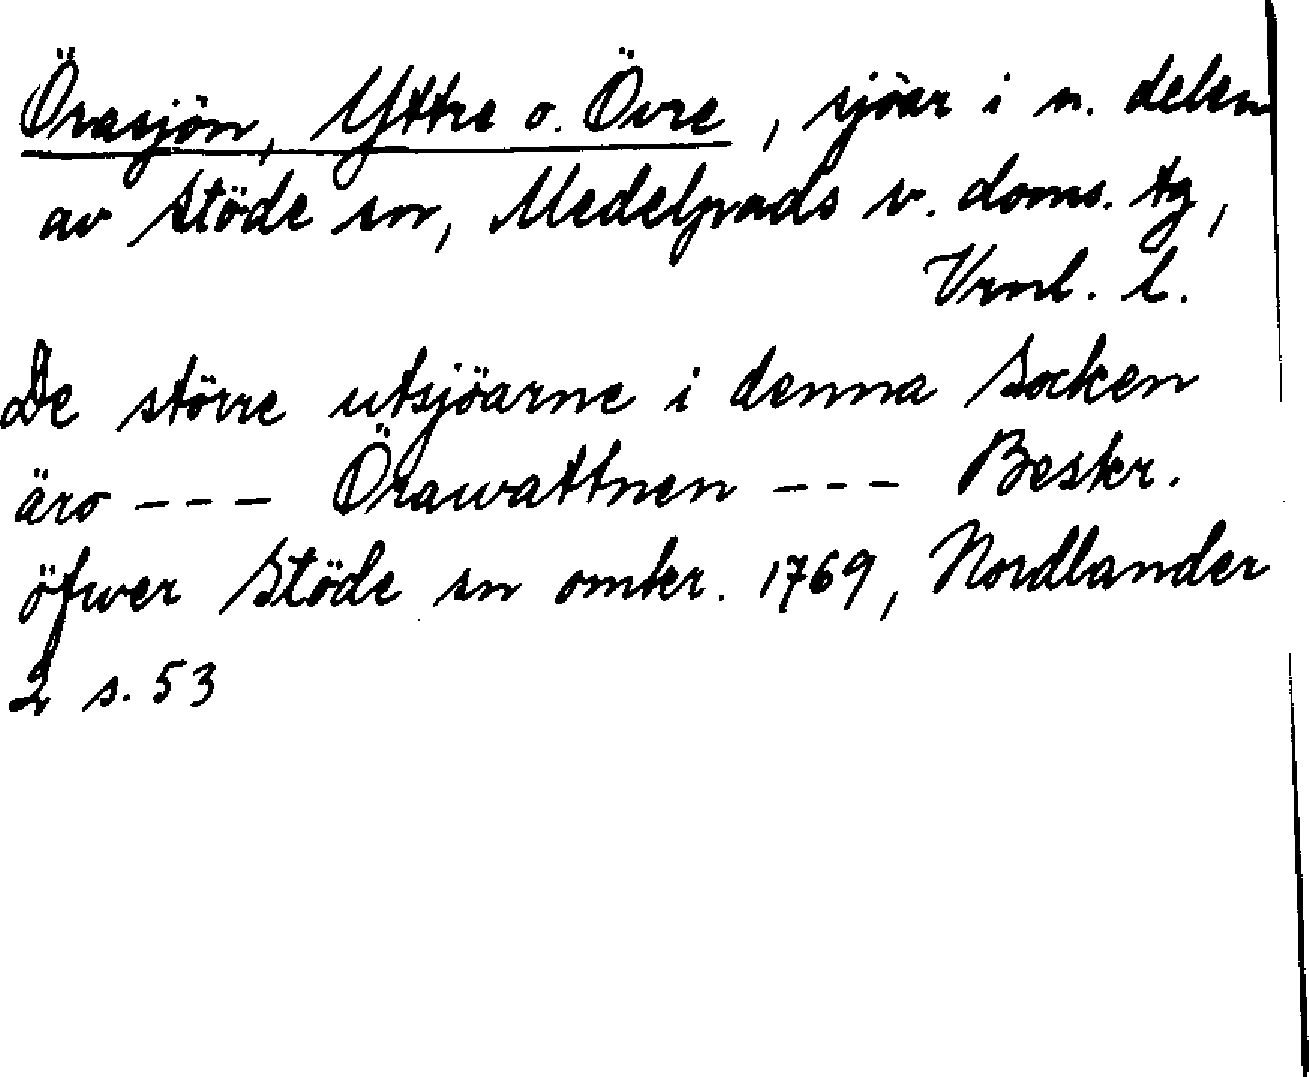 Örasjön, Yttre o. Övre, sjöar i n. delen
av Stöde sn, Medelpads v. doms. tg,
Vrnl. l.
De större utsjöarne i denna Socken
äro --- Örawattnen --- Beskr.
öfwer Stöde sn omkr. 1769, Nordlander
2 s. 53